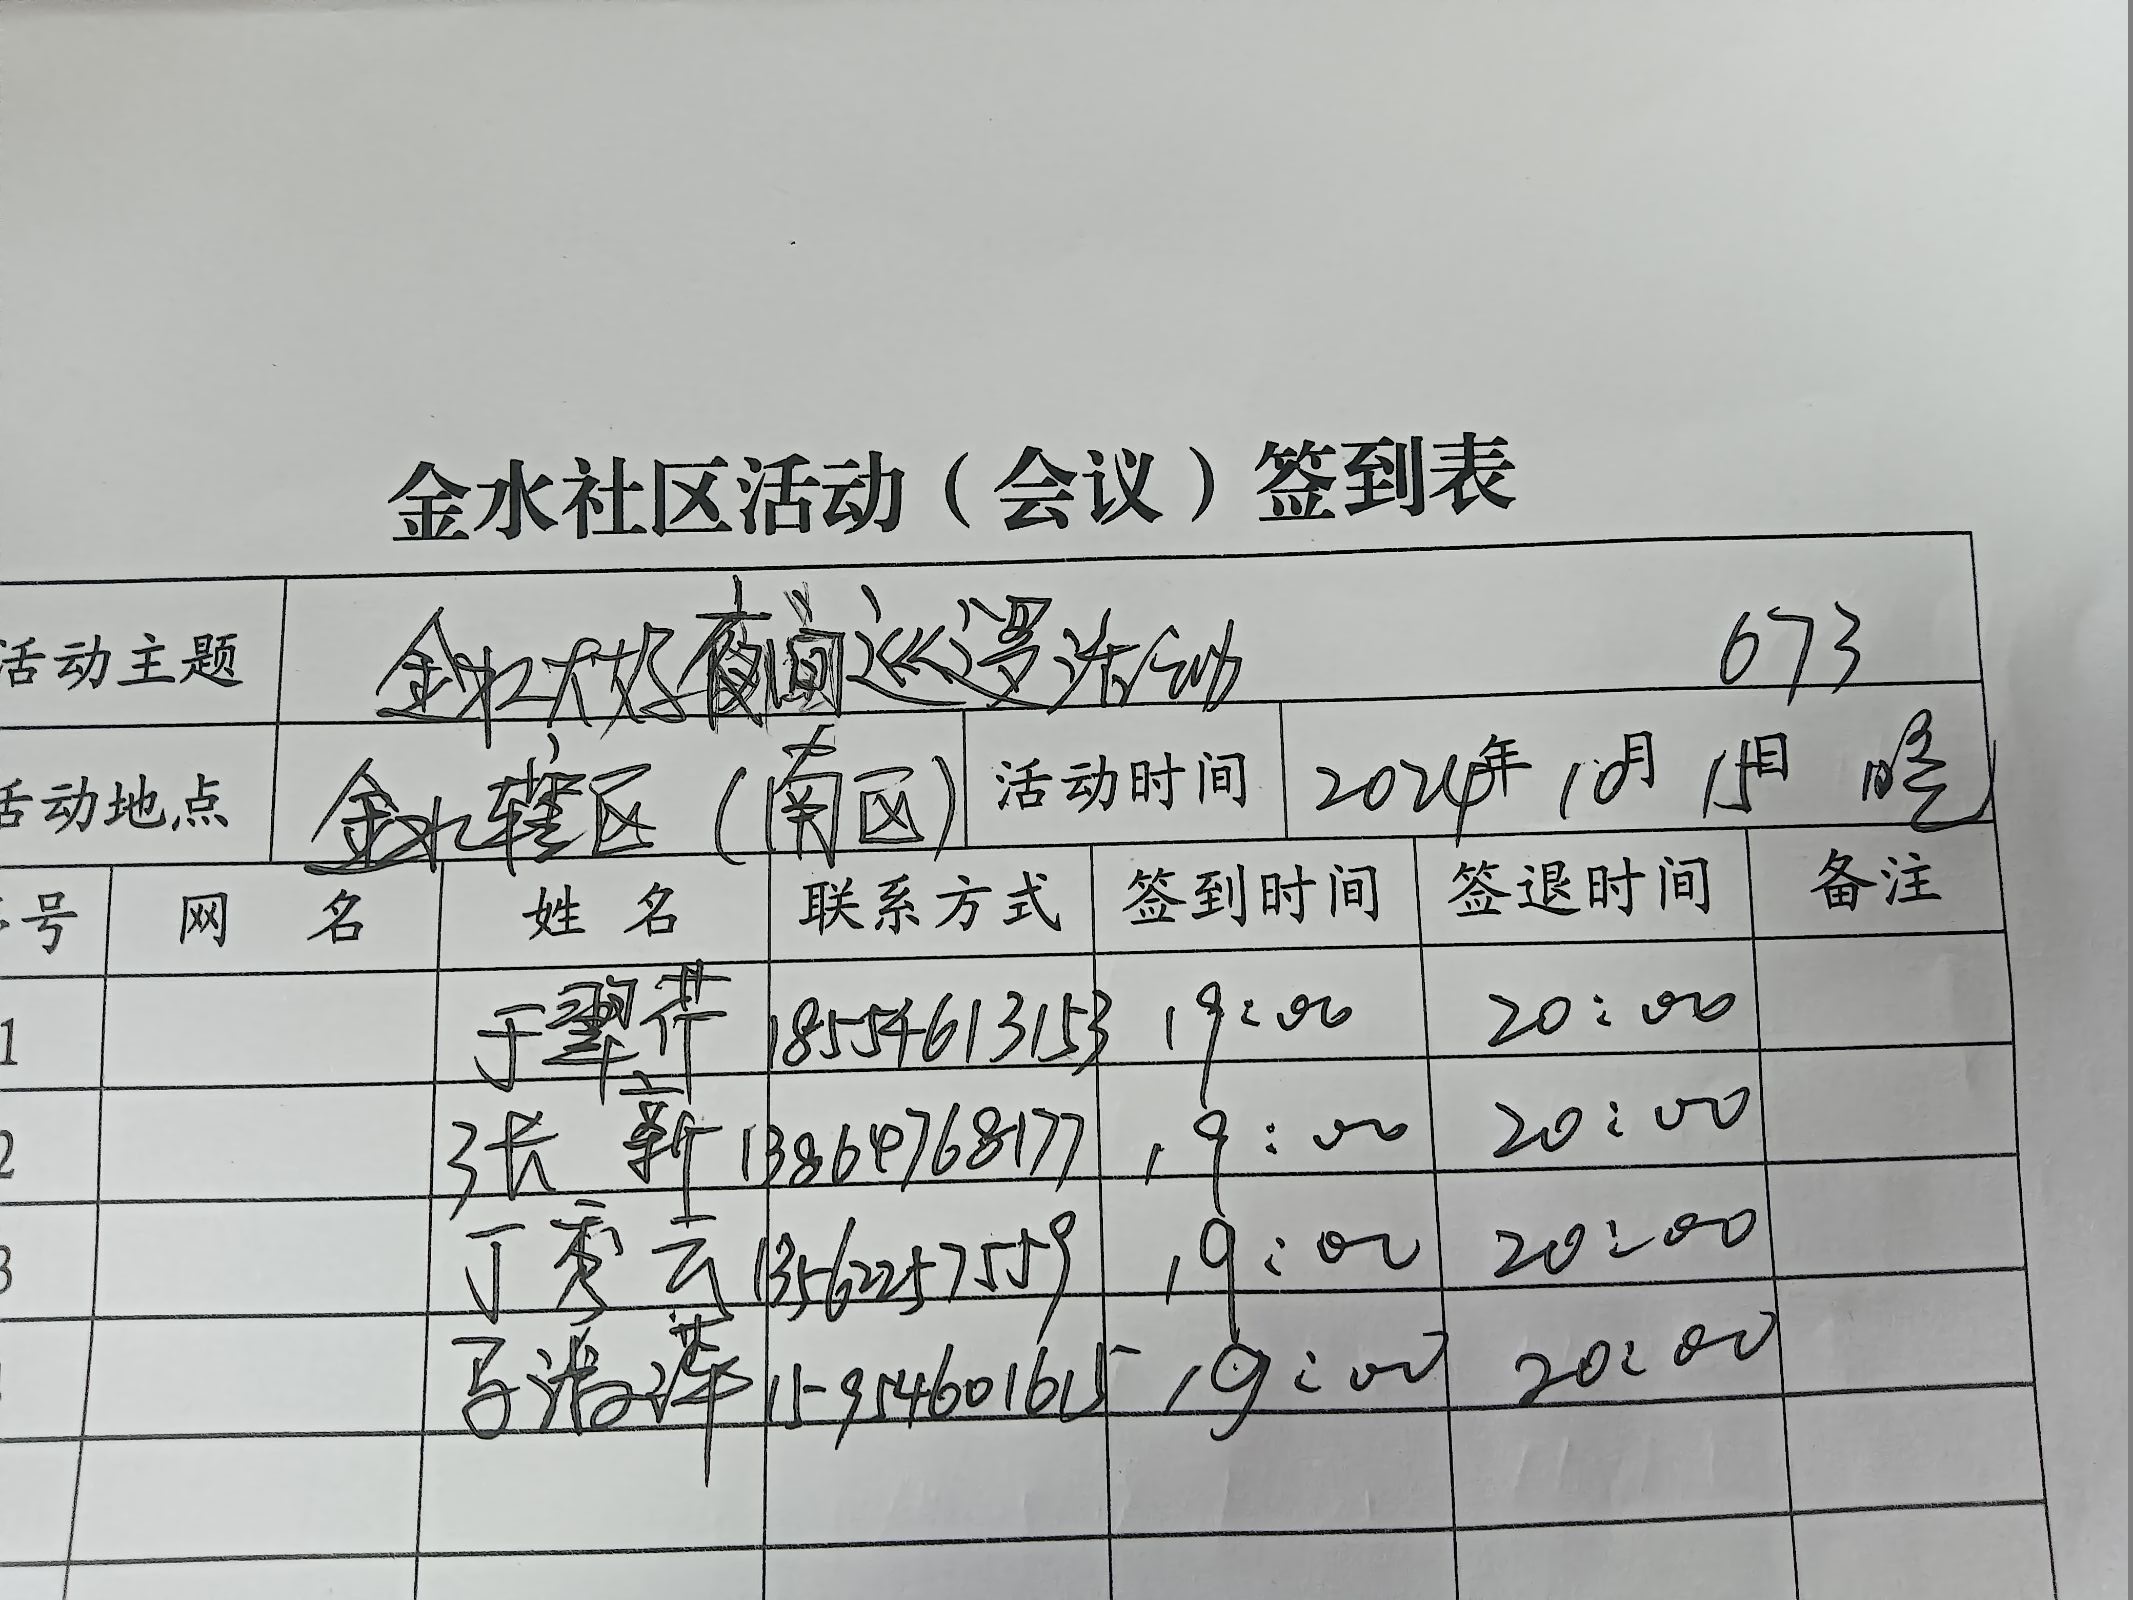 金水社区活动（会议）签到表
活动主题 金水大好夜间巡逻活动 673
活动地点 金水辖区（南区） 活动时间 2024年10月15日 晚
号 网 名 姓 名 联系方式 签到时间 签退时间 备注
1 于翠芹 18554613153 19:00 20:00
2 张新 13864768177 19:00 20:00
3 丁秀云 13562257559 19:00 20:00
15954601615 19:00 20:00